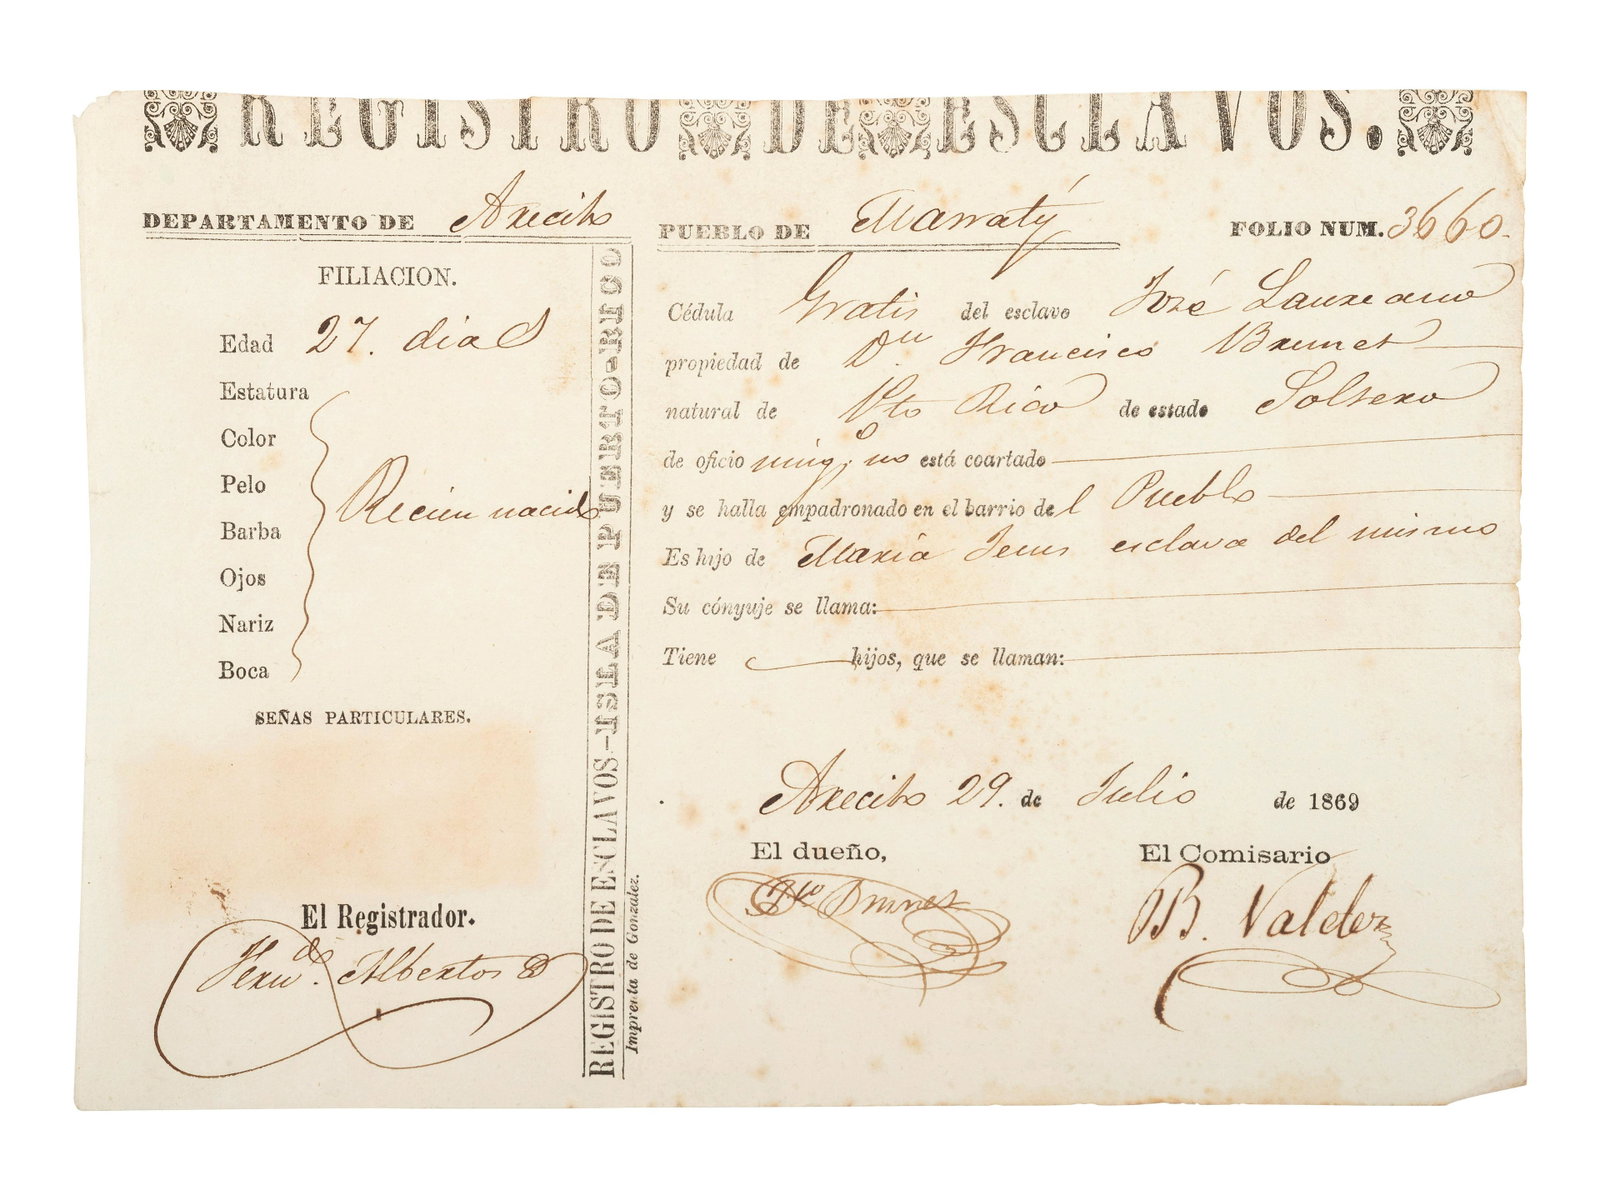 REGISTRO DE ESCLAVOS.
DEPARTAMENTO DE Arecibo
PUEBLO DE Manaty
FOLIO NUM. 3660.
FILIACION.
Edad 27. dias
Estatura
Color
Pelo
Barba
Ojos
Nariz
Boca
Recien nacido
SEÑAS PARTICULARES.
El Registrador.
Albertos
REGISTRO DE ESCLAVOS-ISLA DE PUERTO-RICO
Imprenta de Gonzalez.
Cédula Gratis del esclavo José Laureano
propiedad de Dn. Francisco Brunet
natural de Pto Rico de estado Soltero
de oficio ningo. no está coartado
y se halla empadronado en el barrio del Pueblo
Es hijo de Maria Jesus esclava del mismo
Su cónyuje se llama:
Tiene hijos, que se llaman:
Arecibo 29. de Julio de 1869
El dueño,
Fco Brunet
El Comisario
B. Valdez